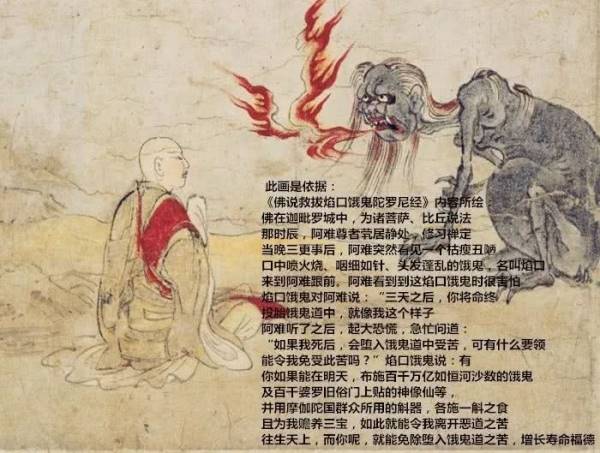 此画是依据：
《佛说救拔焰口饿鬼陀罗尼经》内容所绘：
佛在迦毗罗城中，为诸菩萨、比丘说法
那时辰，阿难尊者茕居静处，修习禅定
当晚三更事后，阿难突然看见一个枯瘦丑陋
口中喷火烧、咽细如针、头发蓬乱的饿鬼，名叫焰口
来到阿难跟前。阿难看到到这焰口饿鬼时很害怕
焰口饿鬼对阿难说：“三天之后，你将命终
投胎饿鬼道中，就像我这个样子
阿难听了之后，起大恐慌，急忙问道：
“如果我死后，会堕入饿鬼道中受苦，可有什么要领
能令我免受此苦吗？”焰口饿鬼说：有
你如果能在明天，布施百千万亿如恒河沙数的饿鬼
及百千婆罗旧俗门上贴的神像仙等，
并用摩伽陀国群众所用的斛器，各施一斛之食
且为我赡养三宝，如此就能令我离开恶道之苦
往生天上，而你呢，就能免除堕入饿鬼道之苦，增长寿命福德